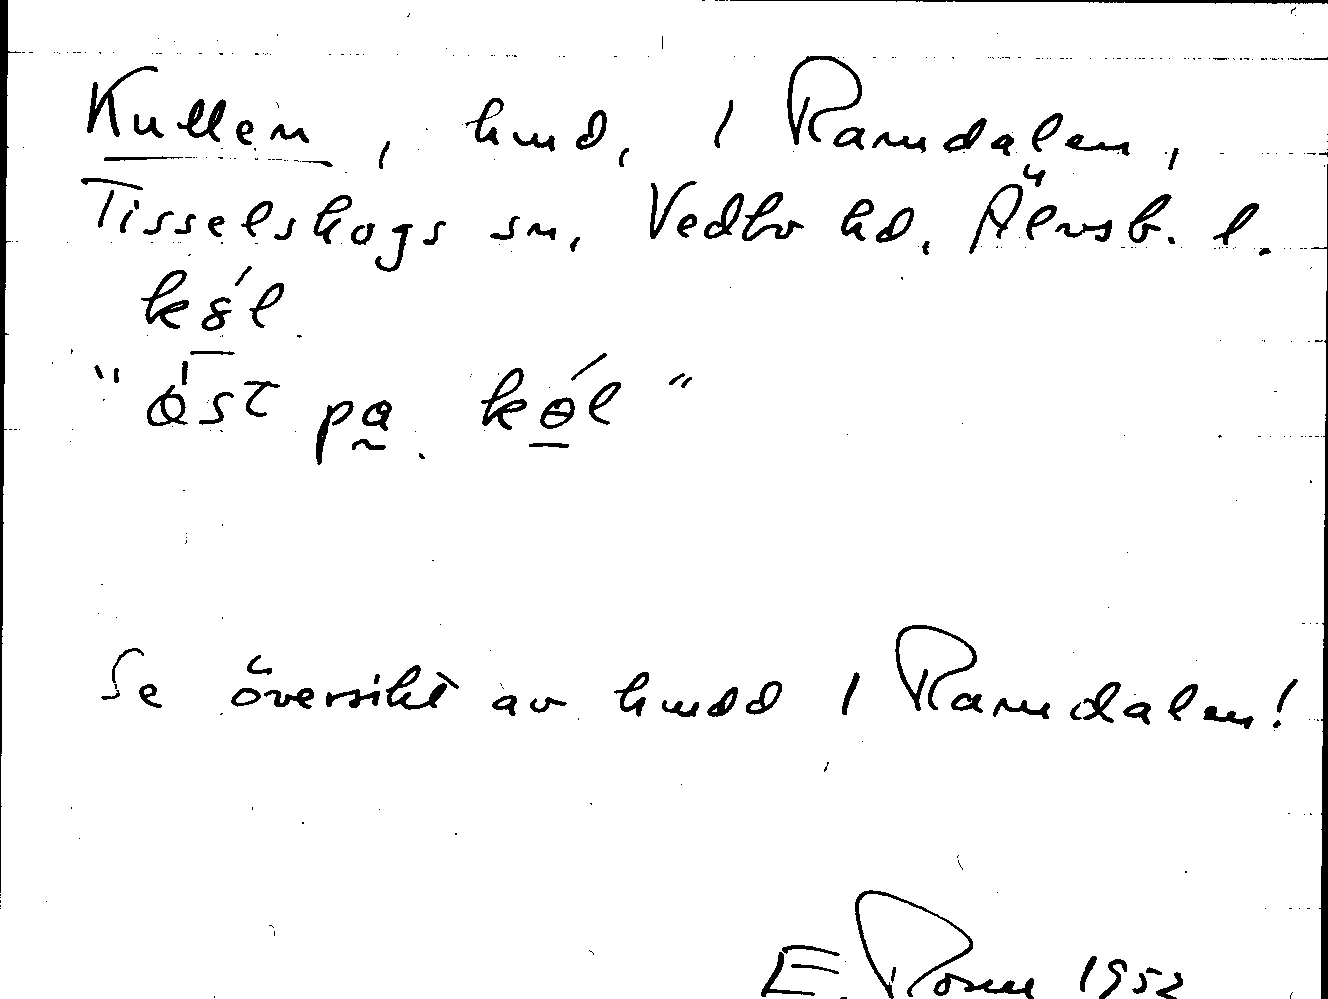 Kullen, hmd, i Ramdalen,
Tisselskogs sn, Vedbo hd. Älvsb. l.
k8́l
"ɵst pa kɵ́l"
Se översikt av hmdd i Ramdalen!
E. 1952